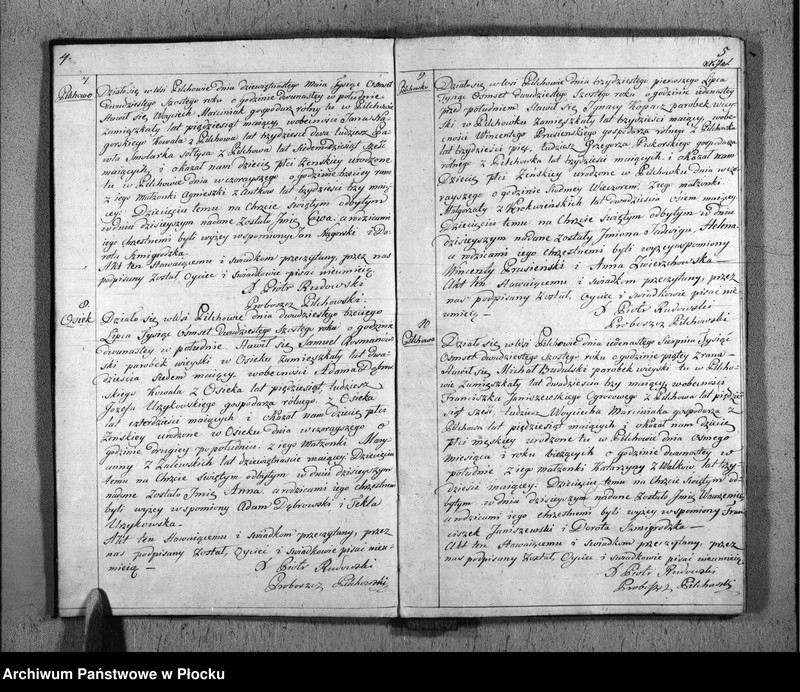 4.
7.
Pilchowo
Działo się w Wsi Pilchowie dnia dziewiętnastego Maia Tysiąc Osmset
dwudziestego szostego roku o godzinie dwunastey w południe.
Stawił się Woyciech Marciniak gospodarz rolny tu w Pilchowie
zamieszkały lat pięćdziesiąt maiący, w obecności Jana Na-
gorskiego Kowala z Pilchowa lat trzydzieści dwa tudzież Pa-
wła Smolarka Sołtysa z Pilchowa lat siedemdziesiąt sześć
maiących i okazał nam dziecię płci żenskiey urodzone
tu w Pilchowie dnia wczorayszego o godzinie trzeciey rano
z iego Małżonki Agnieszki z lat trzydzieści trzy maią-
cey. Dziecięciu temu na Chrzcie Świętym odbytym
w dniu dzisieyszym nadane zostało Jmię Ewa, a rodzicami
iego chrzestnemi byli wyżey wspomniony Jan Nagorski i Do-
rota Szmigrodzka.
Akt ten Stawaiącemu i Świadkom przeczytany, przez nas
podpisany został, Oyciec i Świadkowie pisać nieumieią.
X Piotr Rudowski
Proboszcz Pilchowski.
8.
Osiek
Działo się w Wsi Pilchowie dnia dwudziestego trzeciego
Lipca Tysiąc Osmset dwudziestego Szostego roku o godzinie
dwunastey w południe. Stawił się Samuel Rosmanow-
ski parobek wieyski w Osieku zamieszkały lat dwa-
dzieścia siedem maiący, w obecności Adama Dąbrow-
skiego Kowala z Osieka lat pięćdziesiąt tudzież
Jozefa Uzykowskiego gospodarza rolnego z Osieka
lat czterdzieści maiących i okazał nam dziecię płci
żenskiey urodzone w Osieku dnia wczorayszego o
godzinie drugiey popołudniu z iego Małżonki Mary-
anny z Zalewskich lat dziewiętnaście maiącey. Dziecięciu
temu na Chrzcie Świętym odbytym w dniu dzisieyszym
nadane zostało Jmię Anna, a rodzicami iego chrzestnemi
byli wyżey wspomniony Adam Dąbrowski i Tekla
Uzykowska.
Akt ten Stawaiącemu i Świadkom przeczytany, przez
nas podpisany został, Oyciec i Świadkowie pisać nieu-
mieią —
X Piotr Rudowski
Proboszcz Pilchowski
5
9.
Pilchowko
Działo się w Wsi Pilchowie dnia trzydziestego pierwszego Lipca
Tysiąc Osmset dwudziestego Szostego roku o godzinie iedenastey
przed południem. Stawił się Jgnacy Kopacz parobek wiey-
ski w Pilchowku zamieszkały lat trzydzieści maiący, w obe-
cności Wincentego Prusienskiego gospodarza rolnego z Pilchowka
lat trzydzieści pięć, tudzież Grzegorza Piskorskiego gospodarza
rolnego z Pilchowka lat trzydzieści maiących i okazał nam
Dziecię płci żenskiey urodzone w Pilchowku dnia wczo-
rayszego o godzinie siodmey Wieczorem z iego małżonki
Małgorzaty z Krokwienskich lat dwadzieścia osiem maiącey.
Dziecięciu temu na Chrzcie Świętym odbytym w dniu
dzisieyszym nadane zostały Jmiona Jadwiga, Helena
a rodzicami iego chrzestnemi byli wyżey wspomniony
Wincenty Prusienski i Anna Zwierzchowska —
Akt ten Stawaiącemu i Świadkom przeczytany, przez
nas podpisany został, Oyciec i Świadkowie pisać nie-
umieią —
X Piotr Rudowski
Proboszcz Pilchowski
10
Pilchowo
Działo się w Wsi Pilchowie dnia iedenastego Sierpnia Tysiąc
Osmset dwudziestego szostego roku o godzinie piątey z rana —
Stawił się Michał Budulski parobek wieyski tu w Pilcho-
wie zamieszkały lat dwadzieścia trzy maiący, w obecności
Franciszka Janiszewskiego Ogrodowego z Pilchowa lat pięćdzie-
siąt sześć, tudzież Woyciecha Marciniaka gospodarza z
Pilchowa lat pięćdziesiąt maiących i okazał nam dziecię
płci męskiey urodzone tu w Pilchowie dnia osmego
miesiąca i roku bieżących o godzinie dwunastey w
południe z iego małżonki Katarzyny z Walków lat trzy-
dzieści maiącey. Dziecięciu temu na Chrzcie Świętym od-
bytym w dniu dzisieyszym nadane zostało Jmię Wawrzeniec
a rodzicami iego chrzestnemi byli wyżey wspomniony Fran-
ciszek Janiszewski i Dorota Szmigrodzka —
Akt ten Stawaiącemu i Świadkom przeczytany, przez
nas podpisany został, Oyciec i Świadkowie pisać nieumieią.
X Piotr Rudowski
Proboszcz Pilchowski
Archiwum Państwowe w Płocku